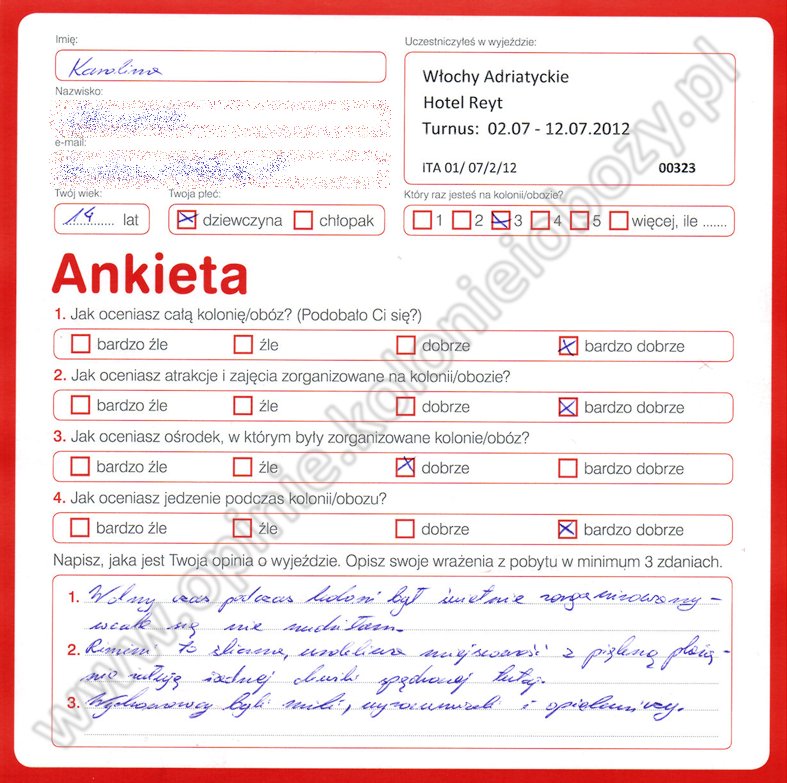 Imię:
Karolina
Nazwisko:
e-mail:
Twój wiek:
14 lat
Twoja płeć:
dziewczyna chłopak
Uczestniczyłeś w wyjeździe:
Włochy Adriatyckie
Hotel Reyt
Turnus: 02.07 - 12.07.2012
iTA 01/ 07/2/12 00323
Który raz jesteś na kolonii/obozie?
1 2 3 4 5 więcej, ile .......
Ankieta
1. Jak oceniasz całą kolonię/obóz? (Podobało Ci się?)
bardzo źle źle dobrze bardzo dobrze
2. Jak oceniasz atrakcje i zajęcia zorganizowane na kolonii/obozie?
bardzo źle źle dobrze bardzo dobrze
3. Jak oceniasz ośrodek, w którym były zorganizowane kolonie/obóz?
bardzo źle źle dobrze bardzo dobrze
4. Jak oceniasz jedzenie podczas kolonii/obozu?
bardzo źle źle dobrze bardzo dobrze
Napisz, jaka jest Twoja opinia o wyjeździe. Opisz swoje wrażenia z pobytu w minimum 3 zdaniach.
1. Wolny czas podczas kolonii był świetnie zorganizowany –
wcale się nie nudziłam.
2. Rimini to śliczna, urokliwa miejscowość z piękną plażą –
nie żałuję żadnej chwili spędzonej tutaj.
3. Wychowawcy byli mili, wyrozumiali i opiekuńczy.
www.opinie.kolonieiobozy.pl